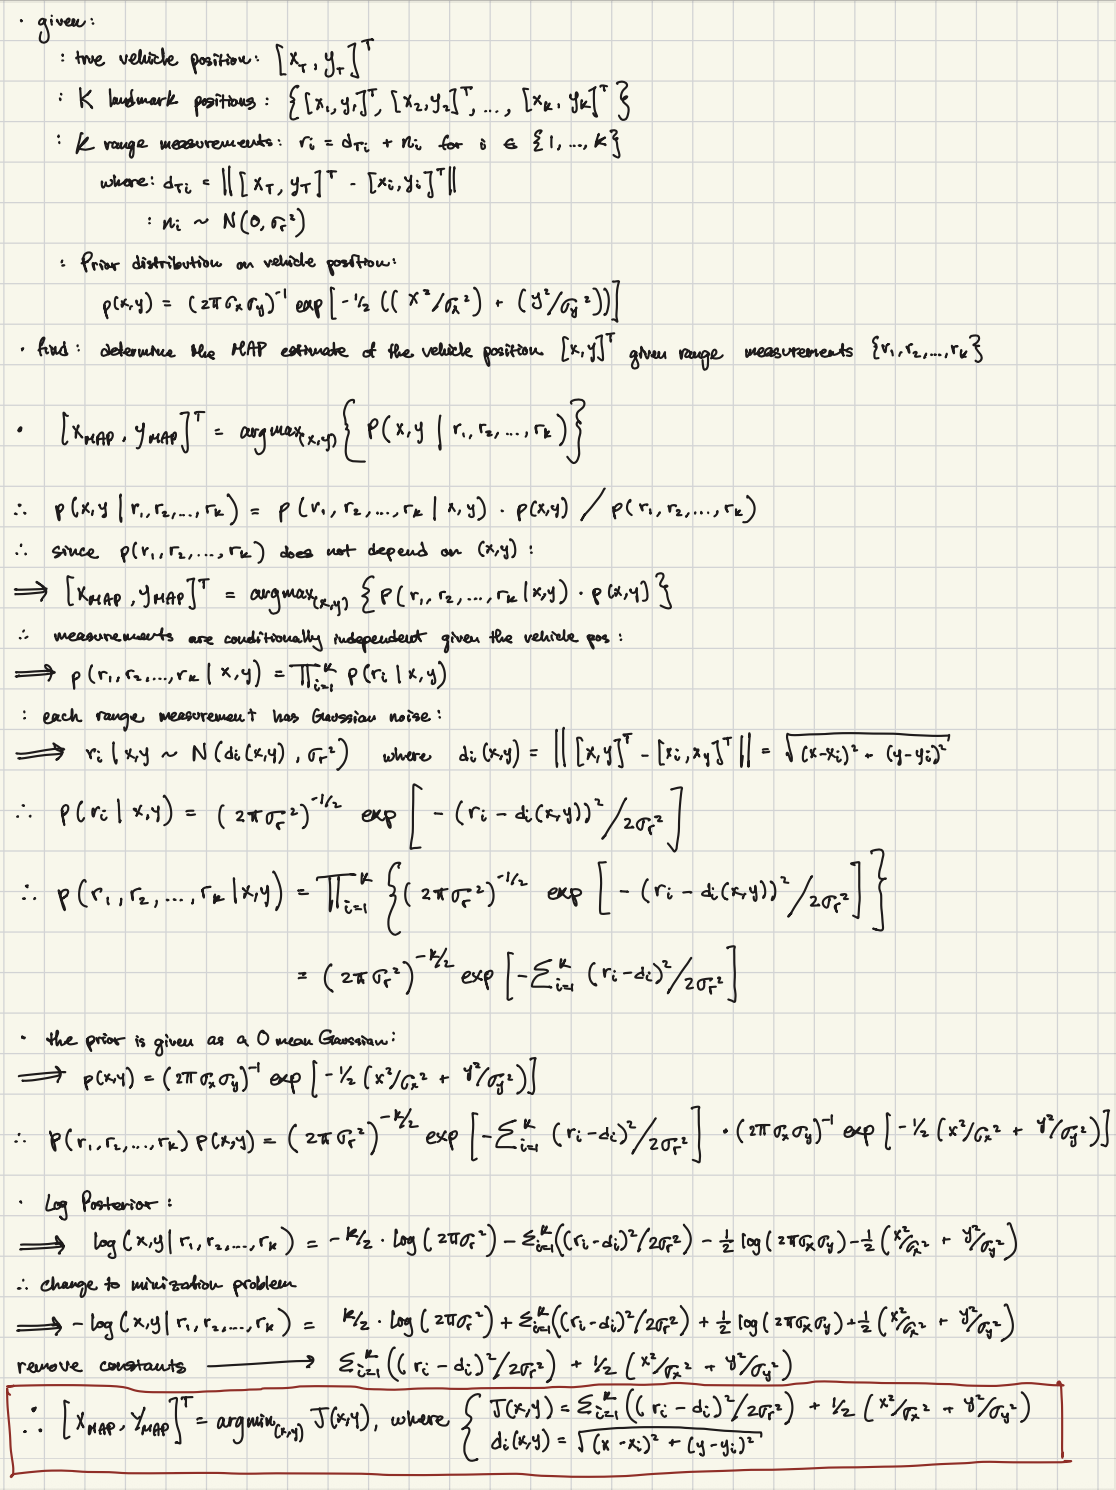 · given:
: true vehicle position: [x_T, y_T]^T
: K landmark positions: {[x_1, y_1]^T, [x_2, y_2]^T, ..., [x_K, y_K]^T}
: K range measurements: r_i = d_Ti + n_i for i ∈ {1, ..., K}
where: d_Ti = ||[x_T, y_T]^T - [x_i, y_i]^T||
: n_i ~ N(0, σ_r^2)
: Prior distribution on vehicle position:
p(x,y) = (2πσ_xσ_y)^-1 exp[-1/2 ((x^2/σ_x^2) + (y^2/σ_y^2))]
· find: determine the MAP estimate of the vehicle position [x,y]^T given range measurements {r_1, r_2, ..., r_K}
· [x_MAP, y_MAP]^T = argmax_(x,y) {p(x,y | r_1, r_2, ..., r_K)}
∴ p(x,y | r_1, r_2, ..., r_K) = p(r_1, r_2, ..., r_K | x,y) · p(x,y) / p(r_1, r_2, ..., r_K)
∴ since p(r_1, r_2, ..., r_K) does not depend on (x,y):
⟹ [x_MAP, y_MAP]^T = argmax_(x,y) {p(r_1, r_2, ..., r_K | x,y) · p(x,y)}
∴ measurements are conditionally independent given the vehicle pos:
⟹ p(r_1, r_2, ..., r_K | x,y) = ∏_{i=1}^K p(r_i | x,y)
: each range measurement has Gaussian noise:
⟹ r_i | x,y ~ N(d_i(x,y), σ_r^2) where d_i(x,y) = ||[x,y]^T - [x_i, x_y]^T|| = √((x-x_i)^2 + (y-y_i)^2)
∴ p(r_i | x,y) = (2πσ_r^2)^{-1/2} exp[-(r_i - d_i(x,y))^2/2σ_r^2]
∴ p(r_1, r_2, ..., r_K | x,y) = ∏_{i=1}^K {(2πσ_r^2)^{-1/2} exp[-(r_i - d_i(x,y))^2/2σ_r^2]}
= (2πσ_r^2)^{-K/2} exp[-Σ_{i=1}^K (r_i - d_i)^2/2σ_r^2]
· the prior is given as a 0 mean Gaussian:
⟹ p(x,y) = (2πσ_xσ_y)^-1 exp[-1/2 (x^2/σ_x^2 + y^2/σ_y^2)]
∴ p(r_1, r_2, ..., r_K) p(x,y) = (2πσ_r^2)^{-K/2} exp[-Σ_{i=1}^K (r_i - d_i)^2/2σ_r^2] · (2πσ_xσ_y)^-1 exp[-1/2 (x^2/σ_x^2 + y^2/σ_y^2)]
· Log Posterior:
⟹ log(x,y | r_1, r_2, ..., r_K) = -K/2 · log(2πσ_r^2) - Σ_{i=1}^K((r_i - d_i)^2/2σ_r^2) - 1/2 log(2πσ_xσ_y) - 1/2 (x^2/σ_x^2 + y^2/σ_y^2)
∴ change to minization problem
⟹ -log(x,y | r_1, r_2, ..., r_K) = K/2 · log(2πσ_r^2) + Σ_{i=1}^K((r_i - d_i)^2/2σ_r^2) + 1/2 log(2πσ_xσ_y) + 1/2 (x^2/σ_x^2 + y^2/σ_y^2)
remove constants ⟶ Σ_{i=1}^K((r_i - d_i)^2/2σ_r^2) + 1/2 (x^2/σ_x^2 + y^2/σ_y^2)
∴ [x_MAP, y_MAP]^T = argmin_(x,y) J(x,y), where { J(x,y) = Σ_{i=1}^K((r_i - d_i)^2/2σ_r^2) + 1/2 (x^2/σ_x^2 + y^2/σ_y^2)
d_i(x,y) = √((x-x_i)^2 + (y-y_i)^2)